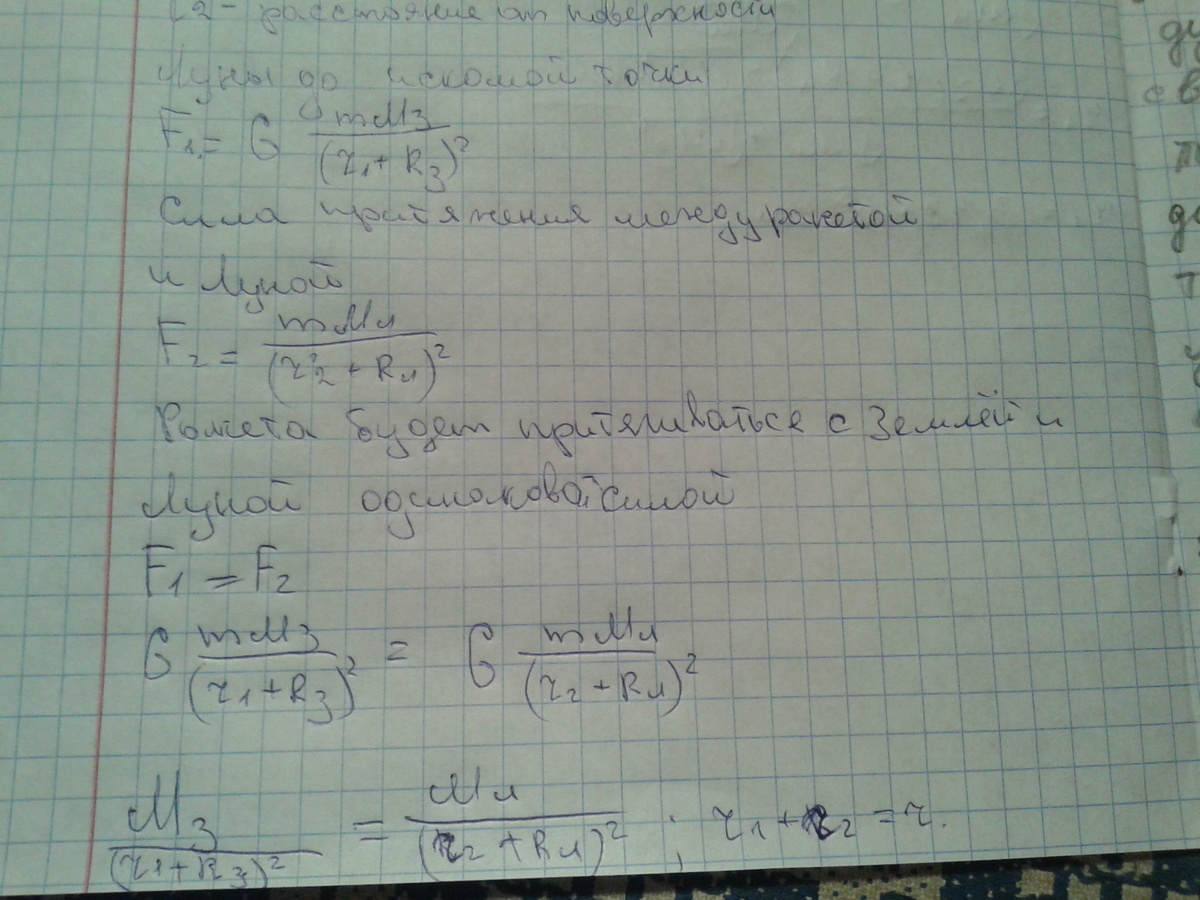 r2 - расстояние от поверхности
Луны до искомой точки
F1 = G mMз / (r1 + Rз)²
Сила притяжения между ракетой
и Луной
F2 = mMл / (r2² + Rл)²
Ракета будет притягиваться с Землёй и
Луной одинаковой силой
F1 = F2
G mMз / (r1 + Rз)² = G mMл / (r2 + Rл)²
Mз / (r1 + Rз)² = Mл / (r2 + Rл)² ; r1 + r2 = r.